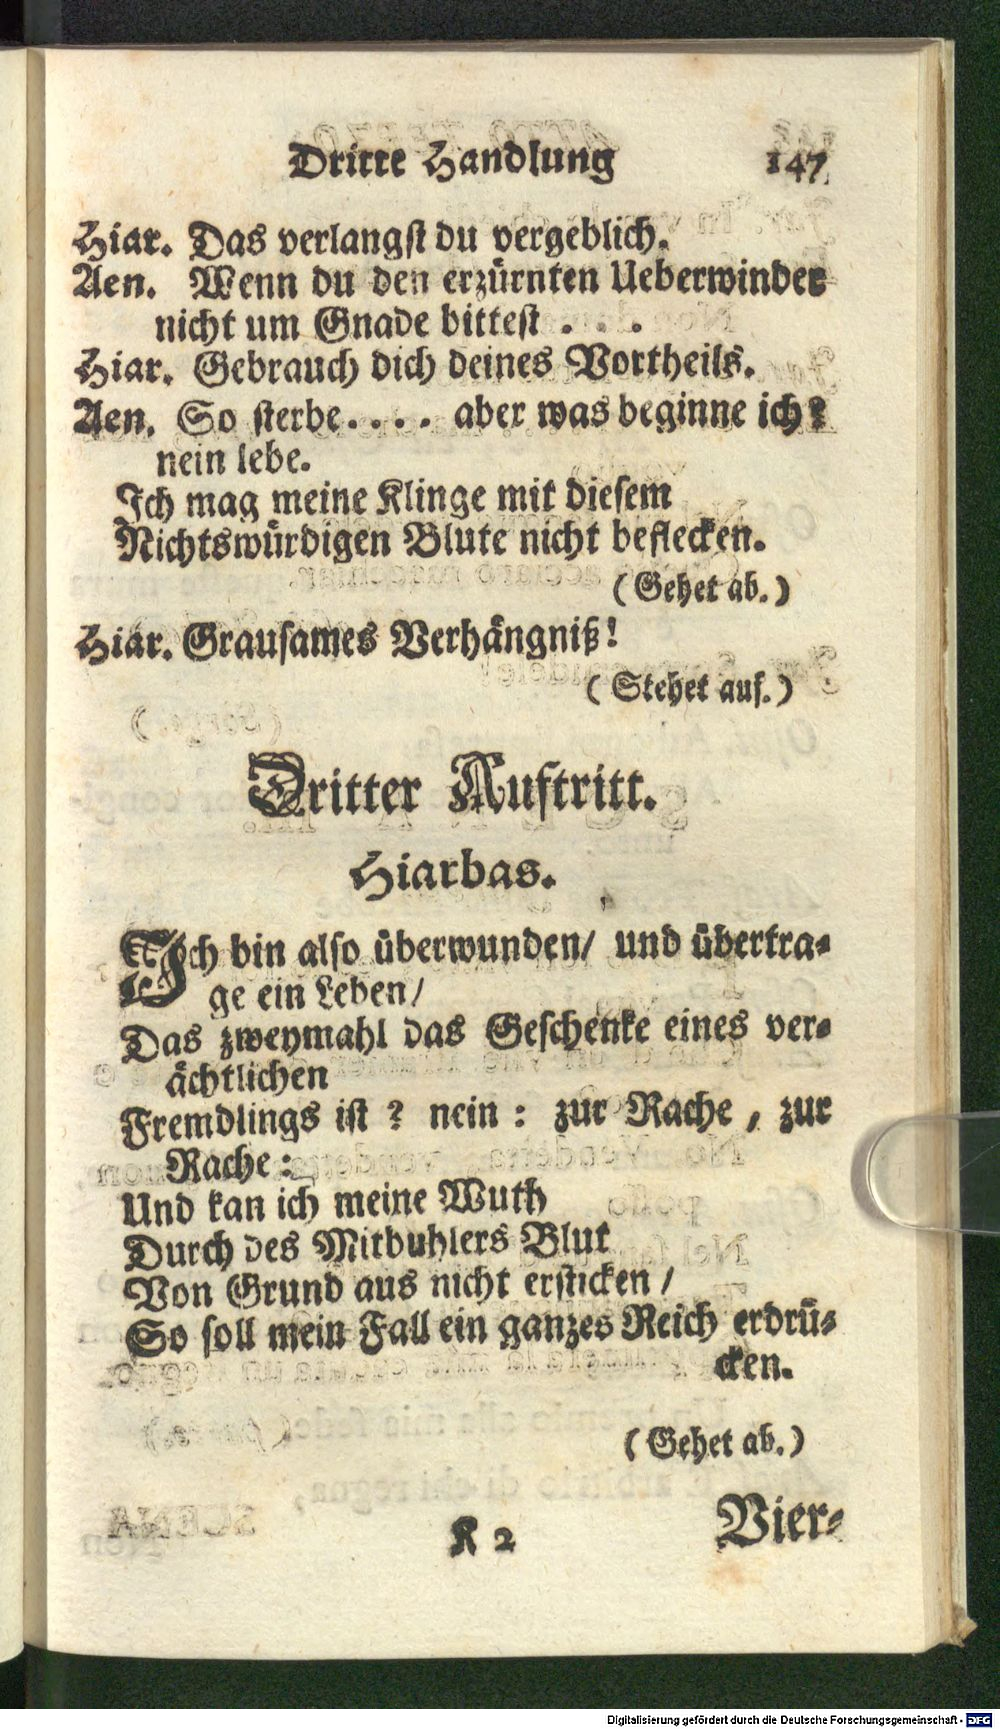 Dritte Handlung 147
Hiar. Das verlangst du vergeblich.
Aen. Wenn du den erzürnten Ueberwinder
nicht um Gnade bittest . . .
Hiar. Gebrauch dich deines Vortheils.
Aen. So sterbe.... aber was beginne ich?
nein lebe.
Ich mag meine Klinge mit diesem
Nichtswürdigen Blute nicht beflecken.
(Gehet ab.)
Hiar. Grausames Verhängniß!
(Stehet auf.)
Dritter Auftritt.
Hiarbas.
Ich bin also überwunden/ und übertra-
ge ein Leben/
Das zweymahl das Geschenke eines ver-
ächtlichen
Fremdlings ist? nein: zur Rache, zur
Rache:
Und kan ich meine Wuth
Durch des Mitbuhlers Blut
Von Grund aus nicht ersticken/
So soll mein Fall ein ganzes Reich erdrü-
cken.
(Gehet ab.)
K 2 Vier-
Digitalisierung gefördert durch die Deutsche Forschungsgemeinschaft - DFG